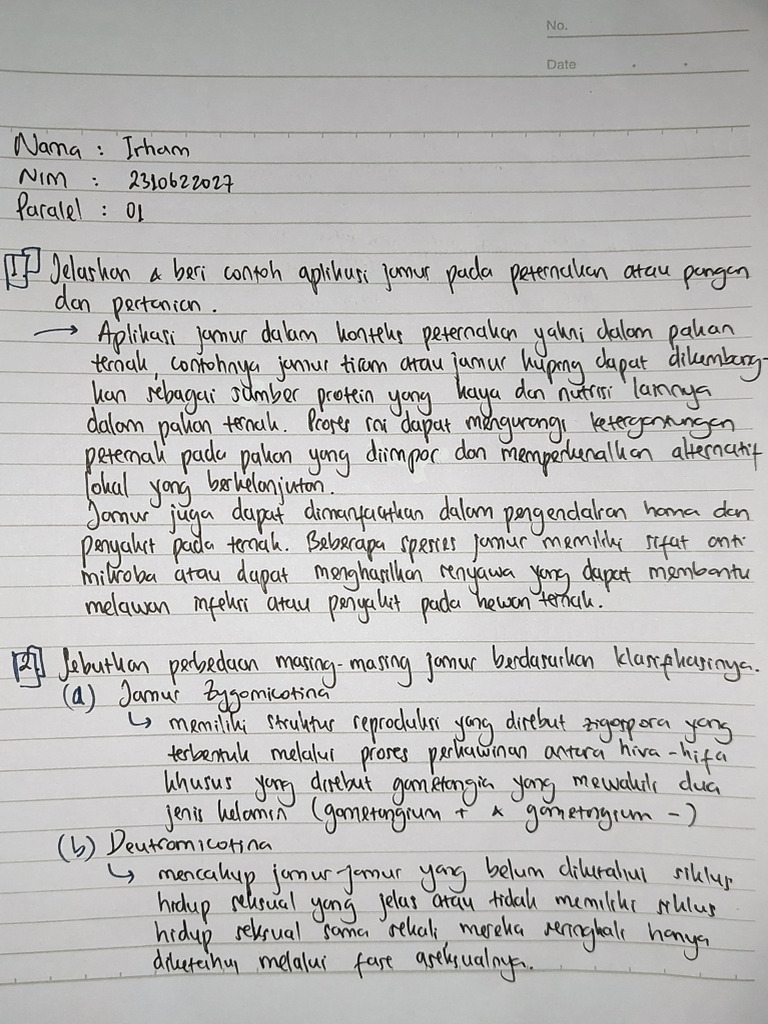 No.
Date
Nama : Irham
NIM : 2310622027
Paralel : 01
1 Jelaskan & beri contoh aplikasi jamur pada peternakan atau pangan
dan pertanian.
→ Aplikasi jamur dalam konteks peternakan yakni dalam pakan
ternak, contohnya jamur tiram atau jamur kuping dapat dikembang-
kan sebagai sumber protein yang kaya dan nutrisi lainnya
dalam pakan ternak. Proses ini dapat mengurangi ketergantungan
peternak pada pakan yang diimpor dan memperkenalkan alternatif
lokal yang berkelanjutan.
Jamur juga dapat dimanfaatkan dalam pengendalian hama dan
penyakit pada ternak. Beberapa spesies jamur memiliki sifat anti
mikroba atau dapat menghasilkan senyawa yang dapat membantu
melawan infeksi atau penyakit pada hewan ternak.
2 Sebutkan perbedaan masing-masing jamur berdasarkan klasifikasinya.
(a) Jamur Zygomicotina
↳ memiliki struktur reproduksi yang disebut zigospora yang
terbentuk melalui proses perkawinan antara hiva-hifa
khusus yang disebut gametangia yang mewakili dua
jenis kelamin (gametangium + & gametangium -)
(b) Deutromicotina
↳ mencakup jamur-jamur yang belum diketahui siklus
hidup seksual yang jelas atau tidak memiliki siklus
hidup seksual sama sekali mereka seringkali hanya
diketahui melalui fase aseksualnya.